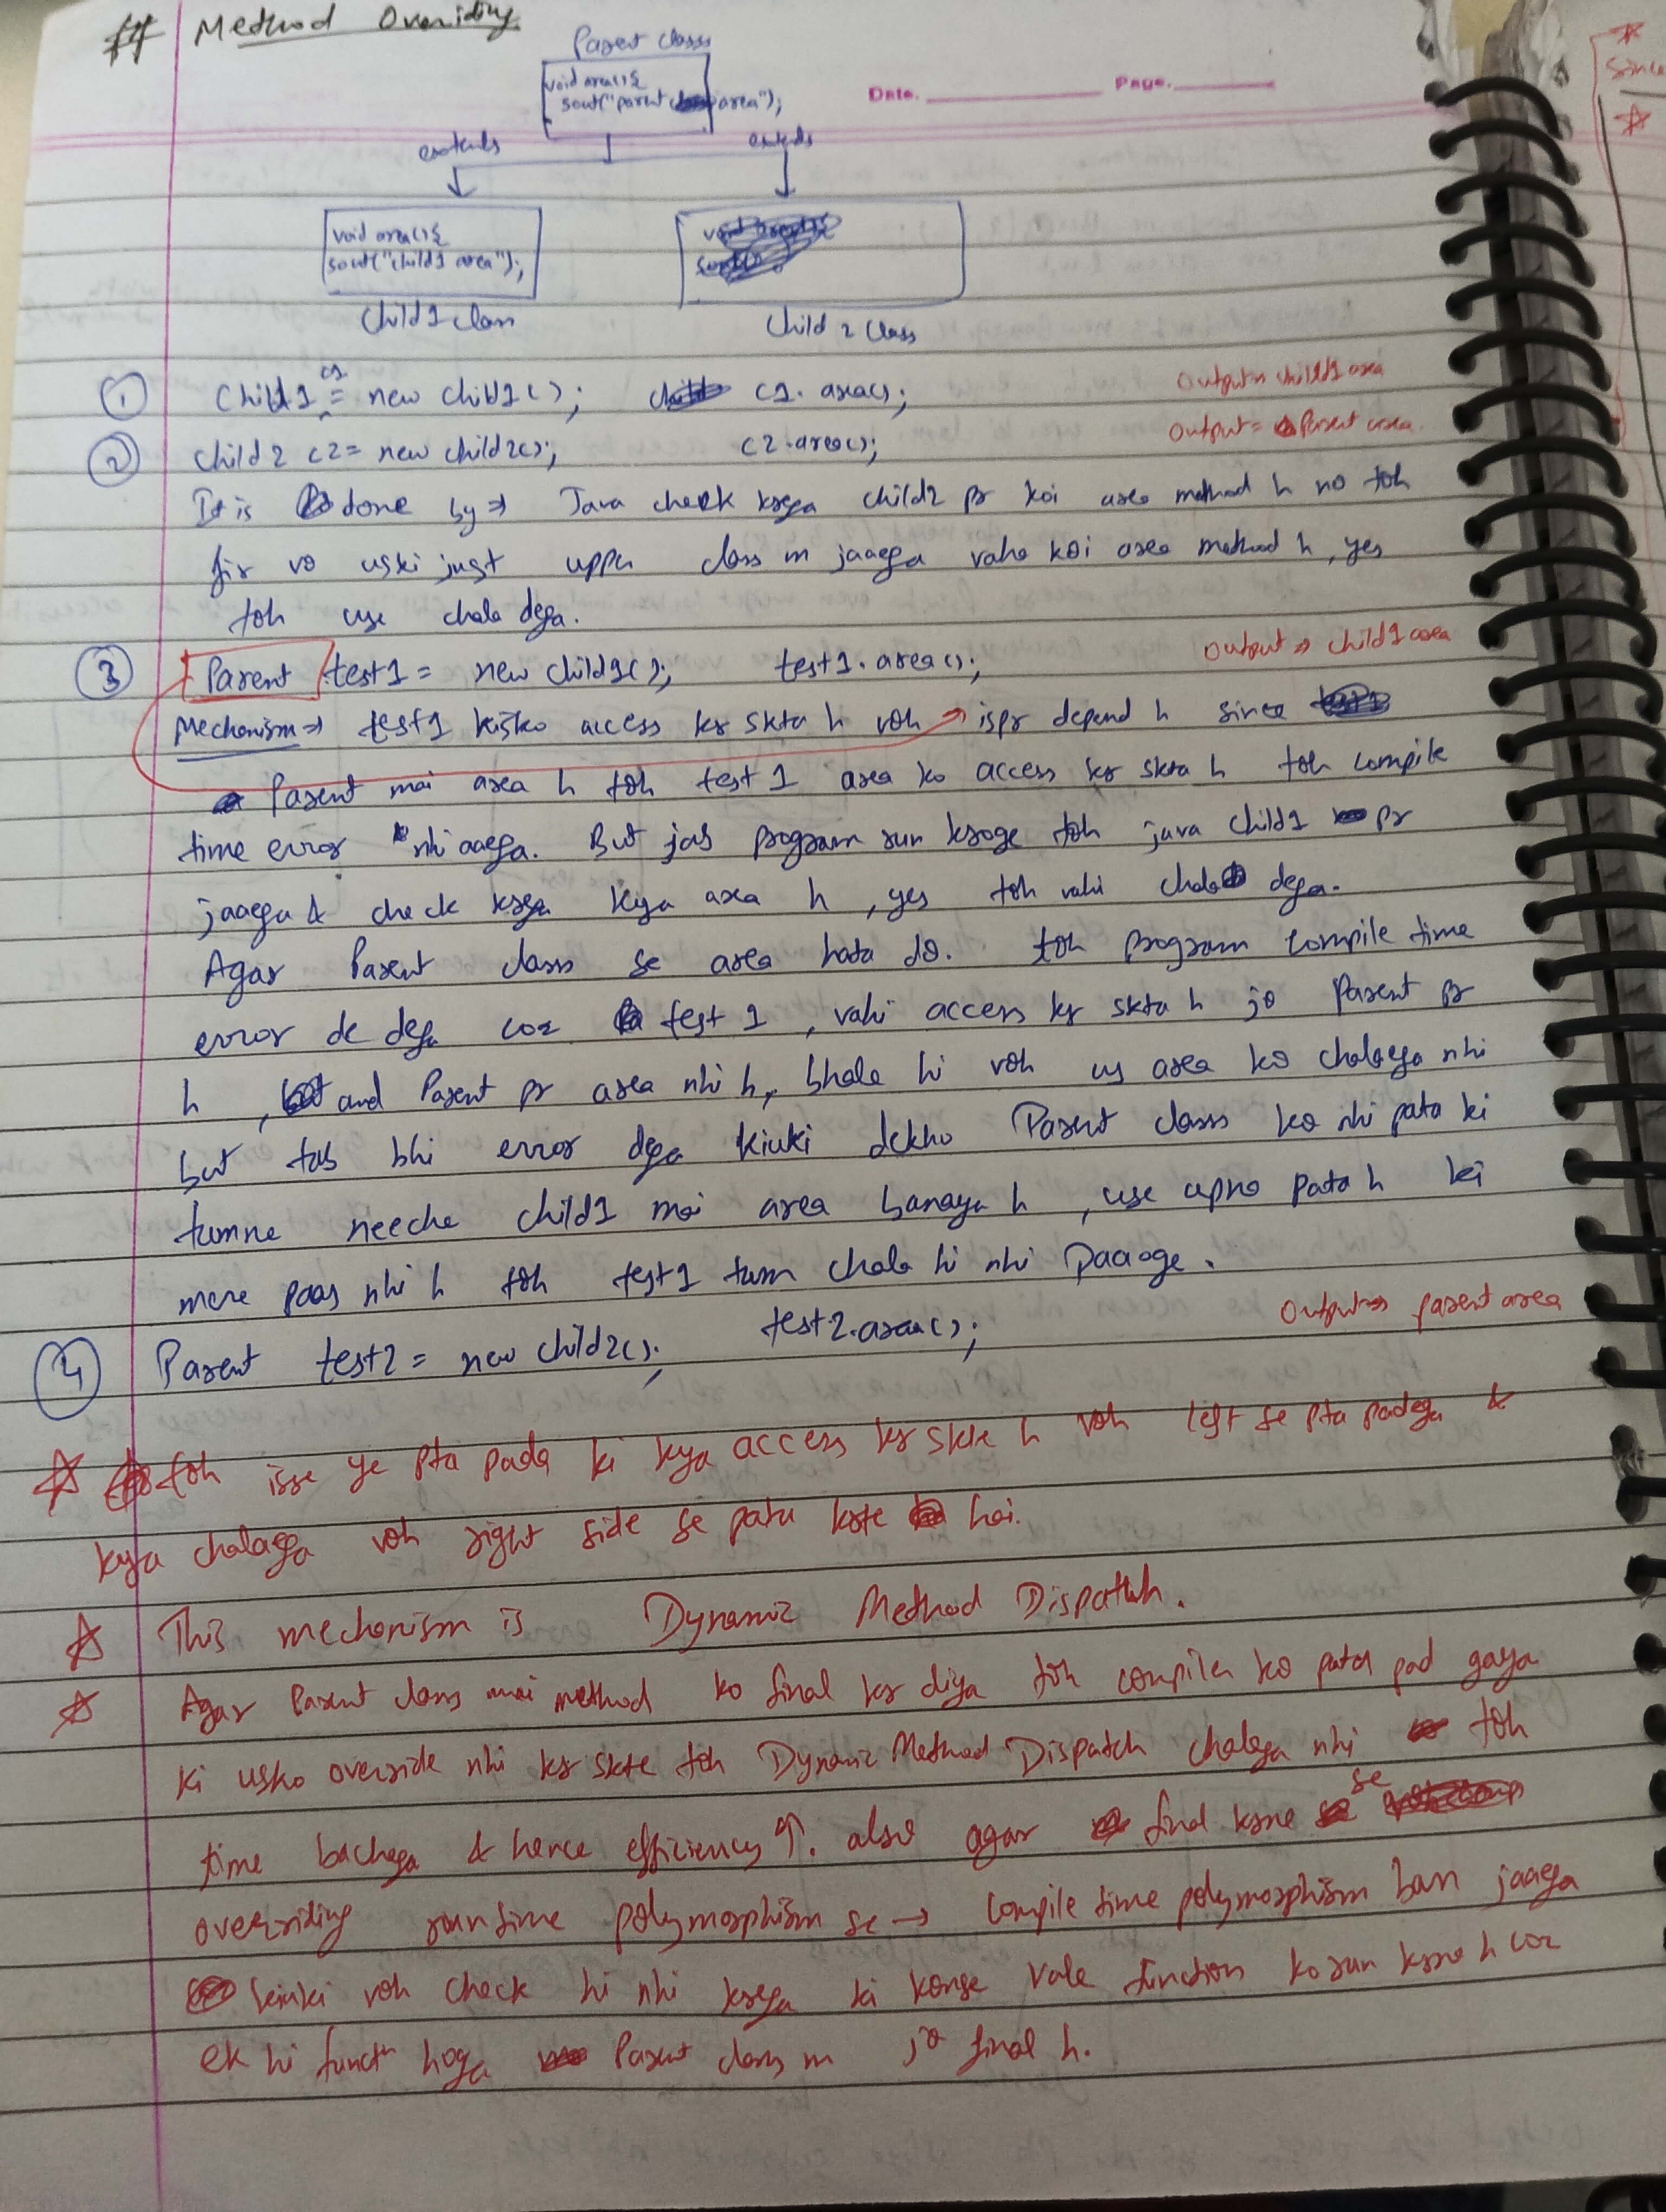 ## Method Overiding
Parent class
Date. Page.
void area(){
sout("parent area");
extends extends
void area(){
sout("child1 area");
Child1 class
Child 2 class
① Child1 c1 = new child1(); c1. area(); Output⇒ child1 area
② Child2 c2= new child2(); c2.area(); Output= Parent area
It is done by ⇒ Java check krega child2 pr koi area method h no toh
fir vo uski just upper class m jaaega vaha koi area method h, yes
toh use chala dega.
③ Parent test1 = new child1(); test1. area(); Output ⇒ child1 area
Mechanism ⇒ test1 kisko access kr skta h voh → ispr depend h since
Parent mai area h toh test 1 area ko access kr skta h toh compile
time error nhi aaega. But jab program run kroge toh java child1 pr
jaaega & check krega kya area h, yes toh vahi chala dega.
Agar Parent class se area hata do. toh program compile time
error de dega coz test 1, vahi access kr skta h jo Parent pr
h, and Parent pr area nhi h, bhale hi voh us area ko chalaega nhi
but tab bhi error dega kiuki dekho Parent class ko nhi pata ki
tumne neeche child1 mai area banaya h, use apna pata h ki
mere paas nhi h toh test1 tum chala hi nhi paaoge.
④ Parent test2 = new child2(); test2.area(); Output⇒ parent area
☆ toh isse ye pta pada ki kya access kr skte h voh left se pta padega &
kya chalaega voh right side se pata krte hai.
☆ This mechanism is Dynamic Method Dispatch.
☆ Agar Parent class mai method ko final kr diya toh compiler ko pata pad gaya
ki usko override nhi kr skte toh Dynamic Method Dispatch chalega nhi toh
time bachega & hence efficiency ↑. also agar final krne se
overriding runtime polymorphism se → compile time polymorphism ban jaaega
kiuki voh check hi nhi krega ki konse vale function ko run krne h coz
ek hi functⁿ hoga Parent class m jo final h.
☆
Since
☆